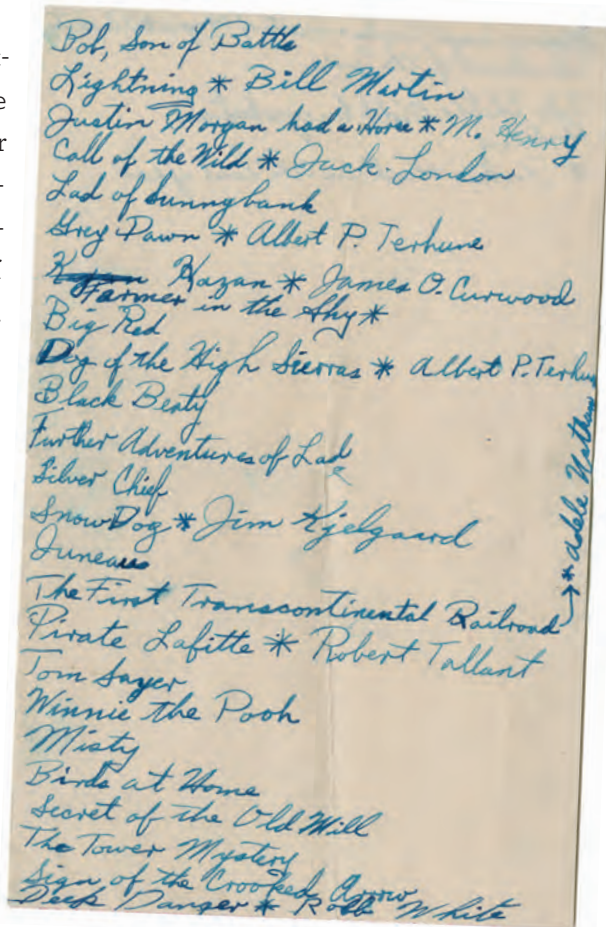 Bob, Son of Battle
Lightning * Bill Martin
Justin Morgan had a Horse * M. Henry
Call of the Wild * Jack London
Lad of Sunnybank
Grey Dawn * Albert P. Terhune
Kazan * James O. Curwood
Farmer in the Sky *
Big Red
Dog of the High Sierras * Albert P. Terhun
Black Beuty
Further Adventures of Lad
Silver Chief
Snow Dog * Jim Kjelgaard
Juneau
The First Transcontinental Railroad → * Adele Nathan
Pirate Lafitte * Robert Tallant
Tom Sayer
Winnie the Pooh
Misty
Birds at Home
Secret of the Old Mill
The Tower Mystery
Sign of the Crooked Arrow
Deep Danger * Robb White